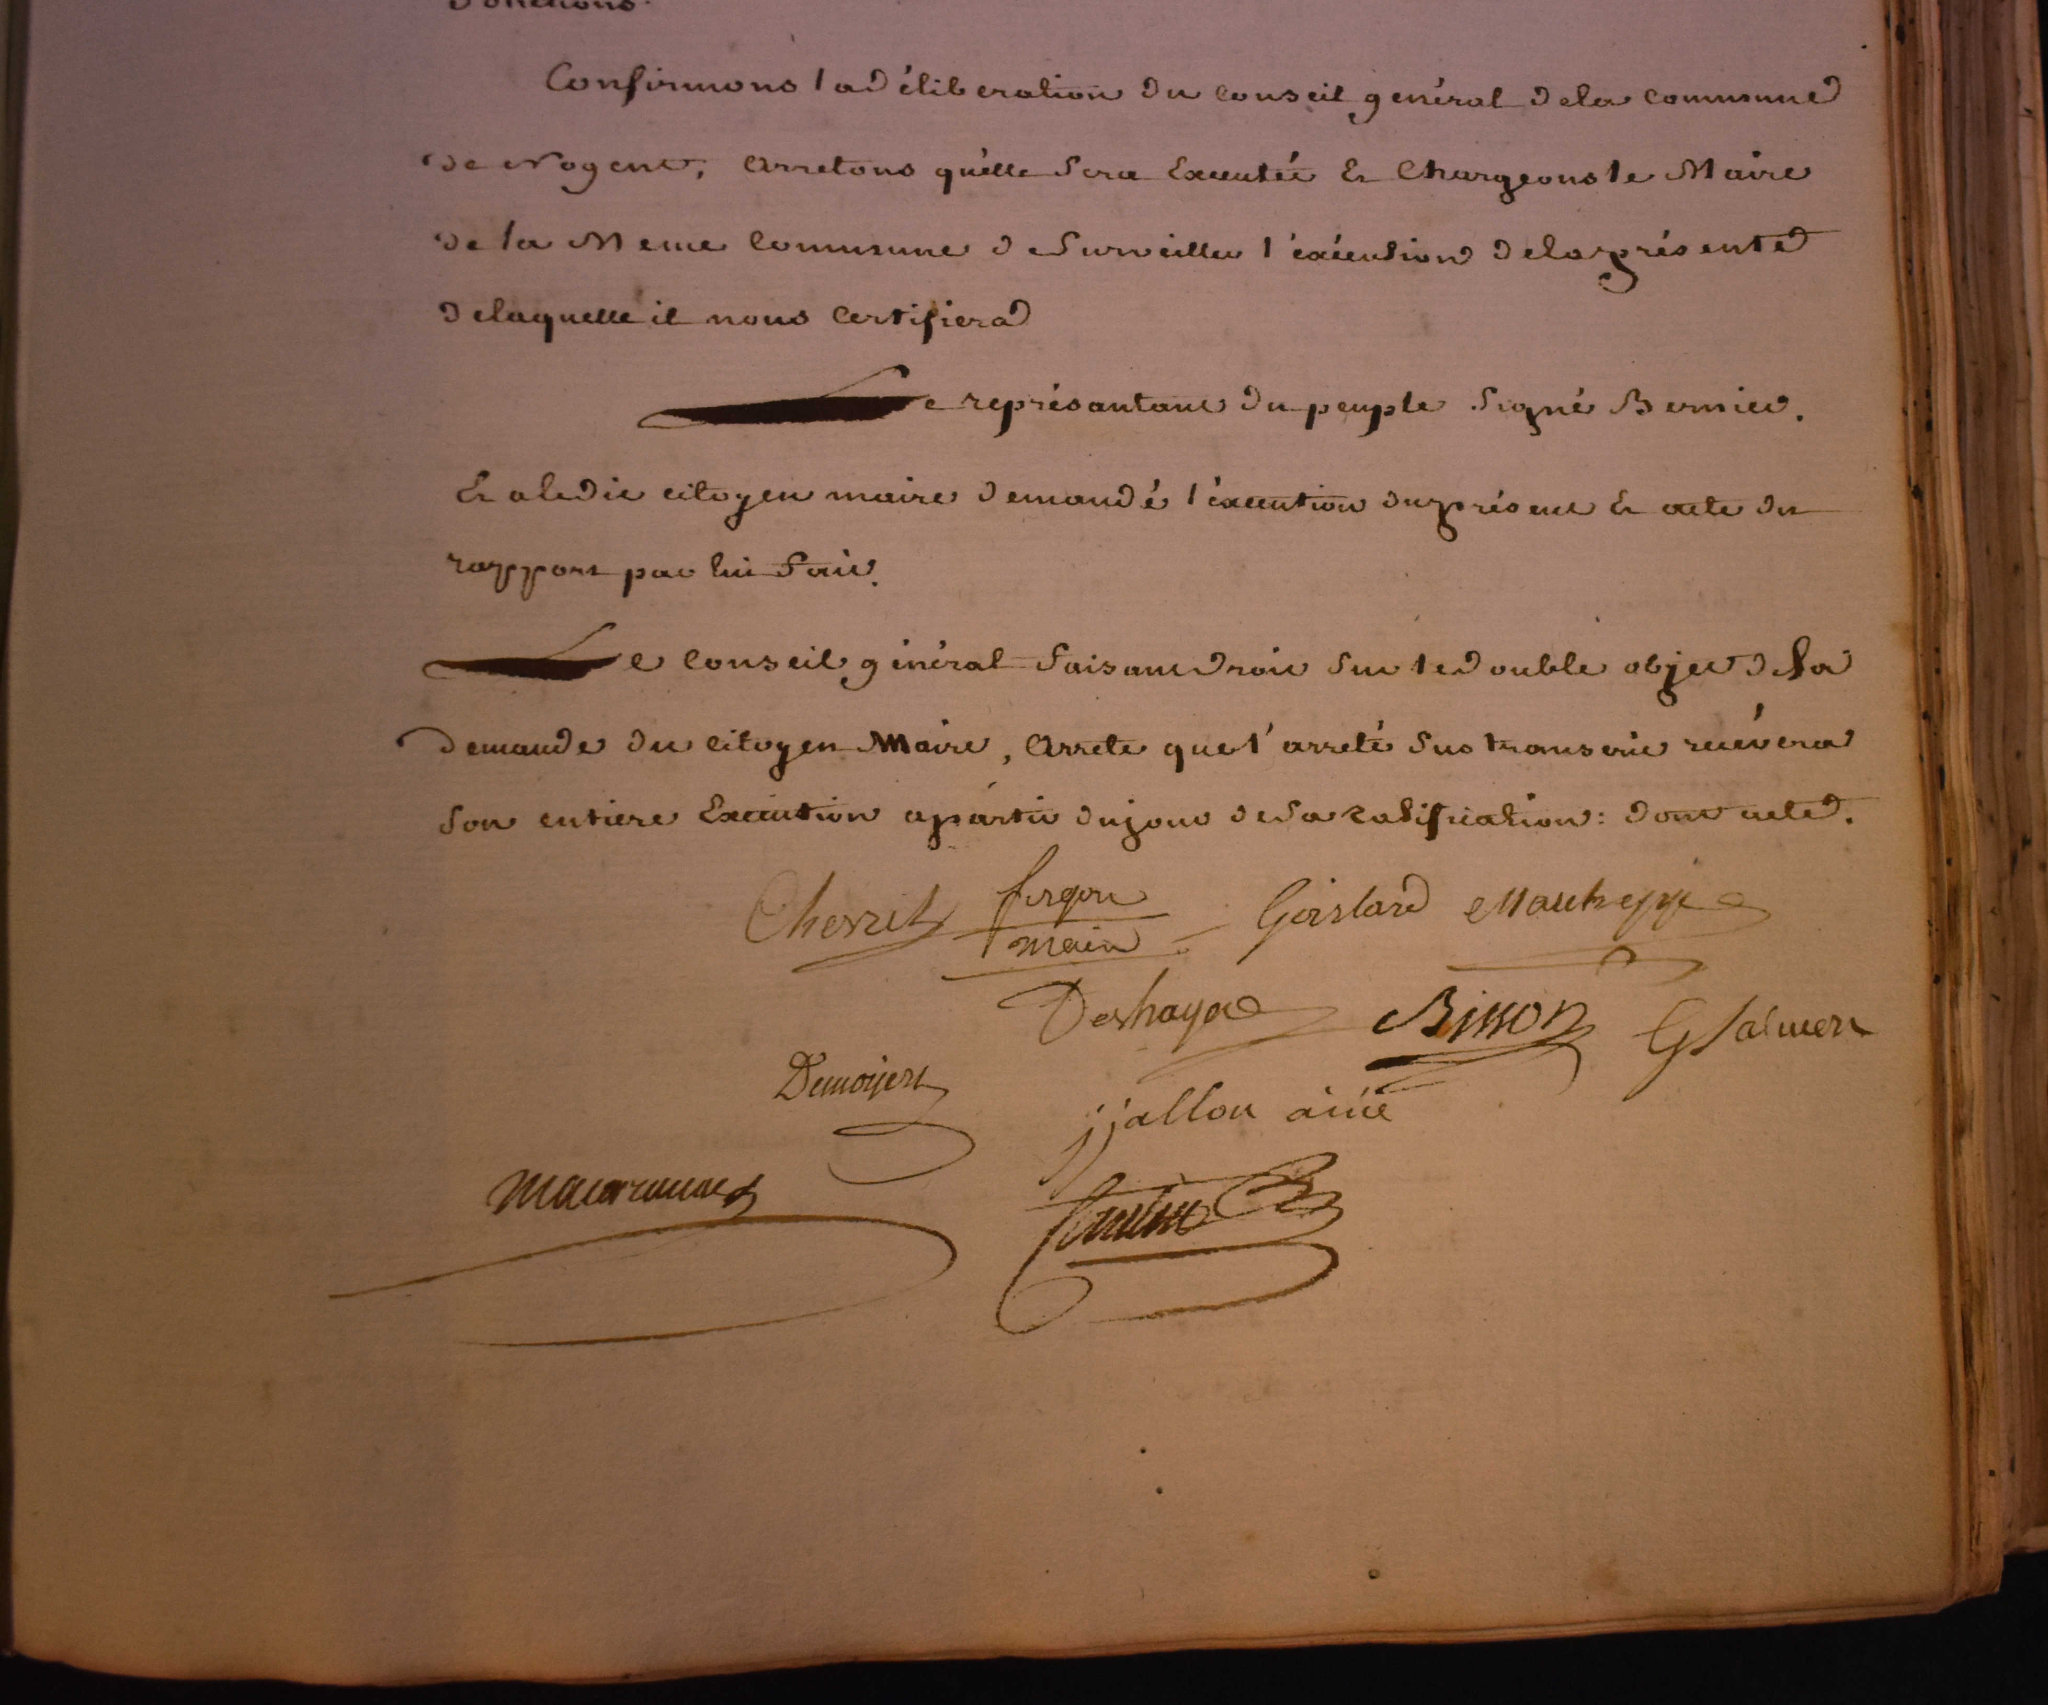 Confirmons la déliberation du conseil général de la commune
de Nogent, arretons qu'elle sera executée & chargeons le Maire
de la Meme commune de surveiller l'éxécution de la présente
de laquelle il nous certifiera
Le représantant du peuple signé Bernier.
& a ledit citoyen maire demandé l'éxecution du présent & acte du
rapport par lui fait.
Le conseil général faisant droit sur le double objet de la
demande du citoyen Maire, arrete que l'arreté sus transcrit recévera
son entiere execution apártir du jour de sa ratification: dont acte.
Gislard
main
Deshayes Bisson
jallon ainé